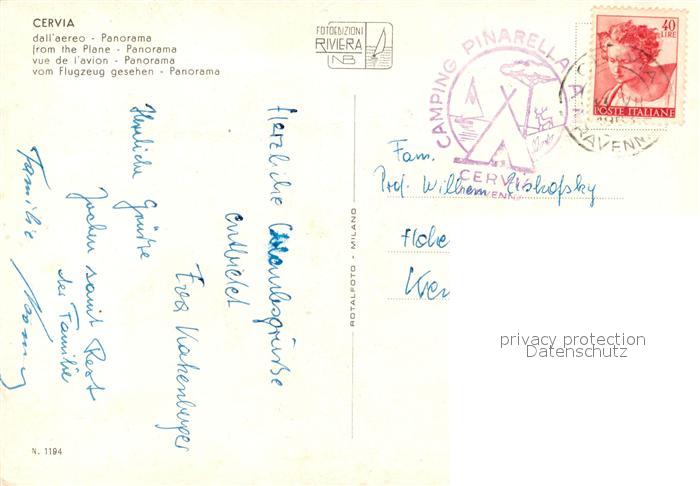 CERVIA
dall'aereo - Panorama
from the Plane - Panorama
vue de l'avion - Panorama
vom Flugzeug gesehen - Panorama
FOTOEDIZIONI
RIVIERA
NB
CAMPING PINARELLA
CERVIA
RAVENNA
40
LIRE
POSTE ITALIANE
Herzliche Urlaubsgrüße
entbietet
Eva
Herzliche Grüße
Jochen samt Rest
der Familie
Familie
Fam.
Prof. Wilhelm
Hohe
ROTALFOTO - MILANO
N. 1194
privacy protection
Datenschutz